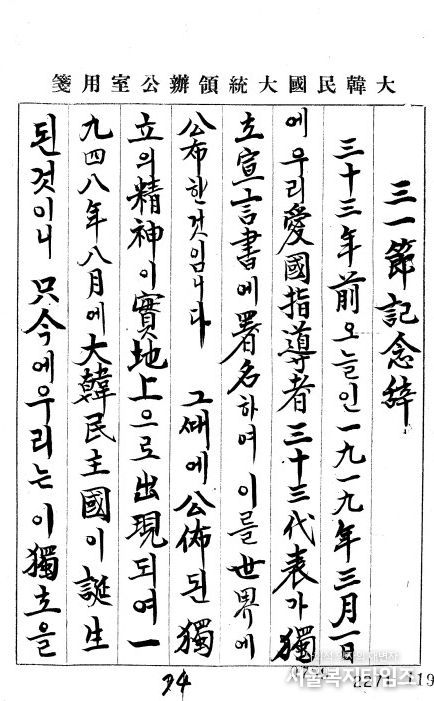 大韓民國大統領辦公室用箋
三一節記念辭
三十三年前오늘인一九一九年三月一日
에우리愛國指導者三十三代表가獨
立宣言書에署名하여이를世界에
公布한것입니다 그때에公佈된獨
立의精神이實地上으로出現되여一
九四八年八月에大韓民主國이誕生
된것이니 只今에우리는이獨立을
94
2271 119
서울복지타임즈